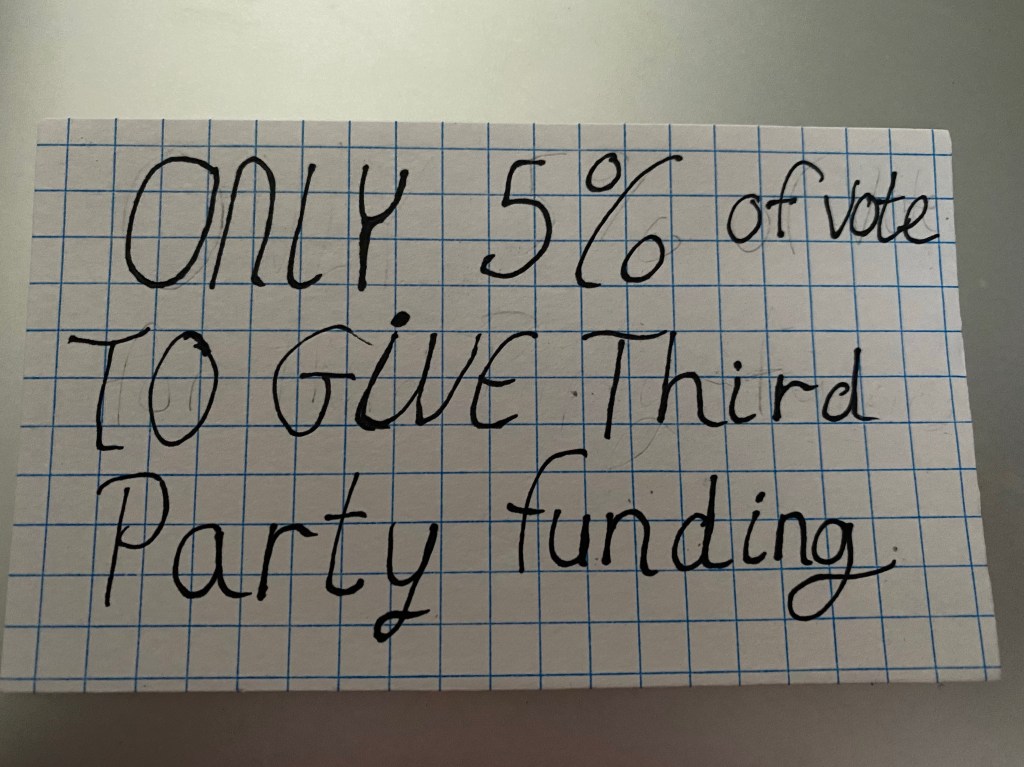 ONLY 5% of vote
TO GiVE Third
Party funding